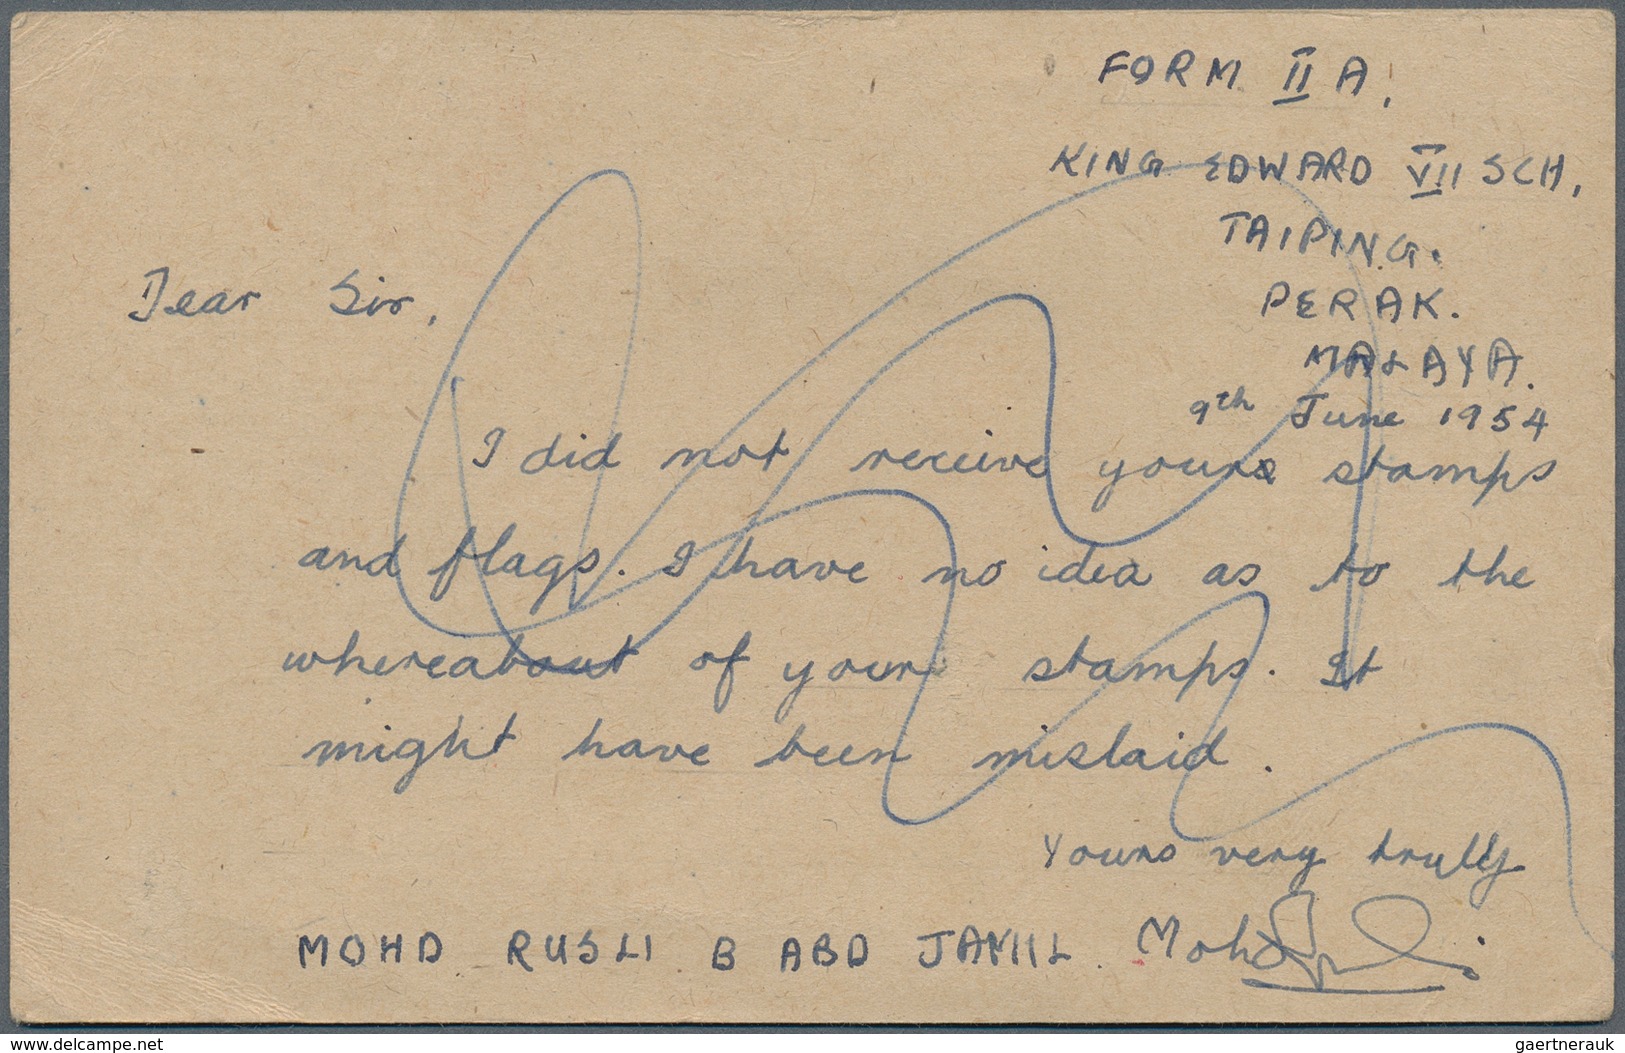 FORM II A,
KING EDWARD VII SCH,
TAIPING.
PERAK.
MALAYA.
9th June 1954
Dear Sir,
I did not receive yours stamps
and flags. I have no idea as to the
whereabout of your stamps. It
might have been mislaid.
Yours very trully
MOHD RUSLI B ABD JAMIL. Mohd
www.delcampe.net
gaertnerauk